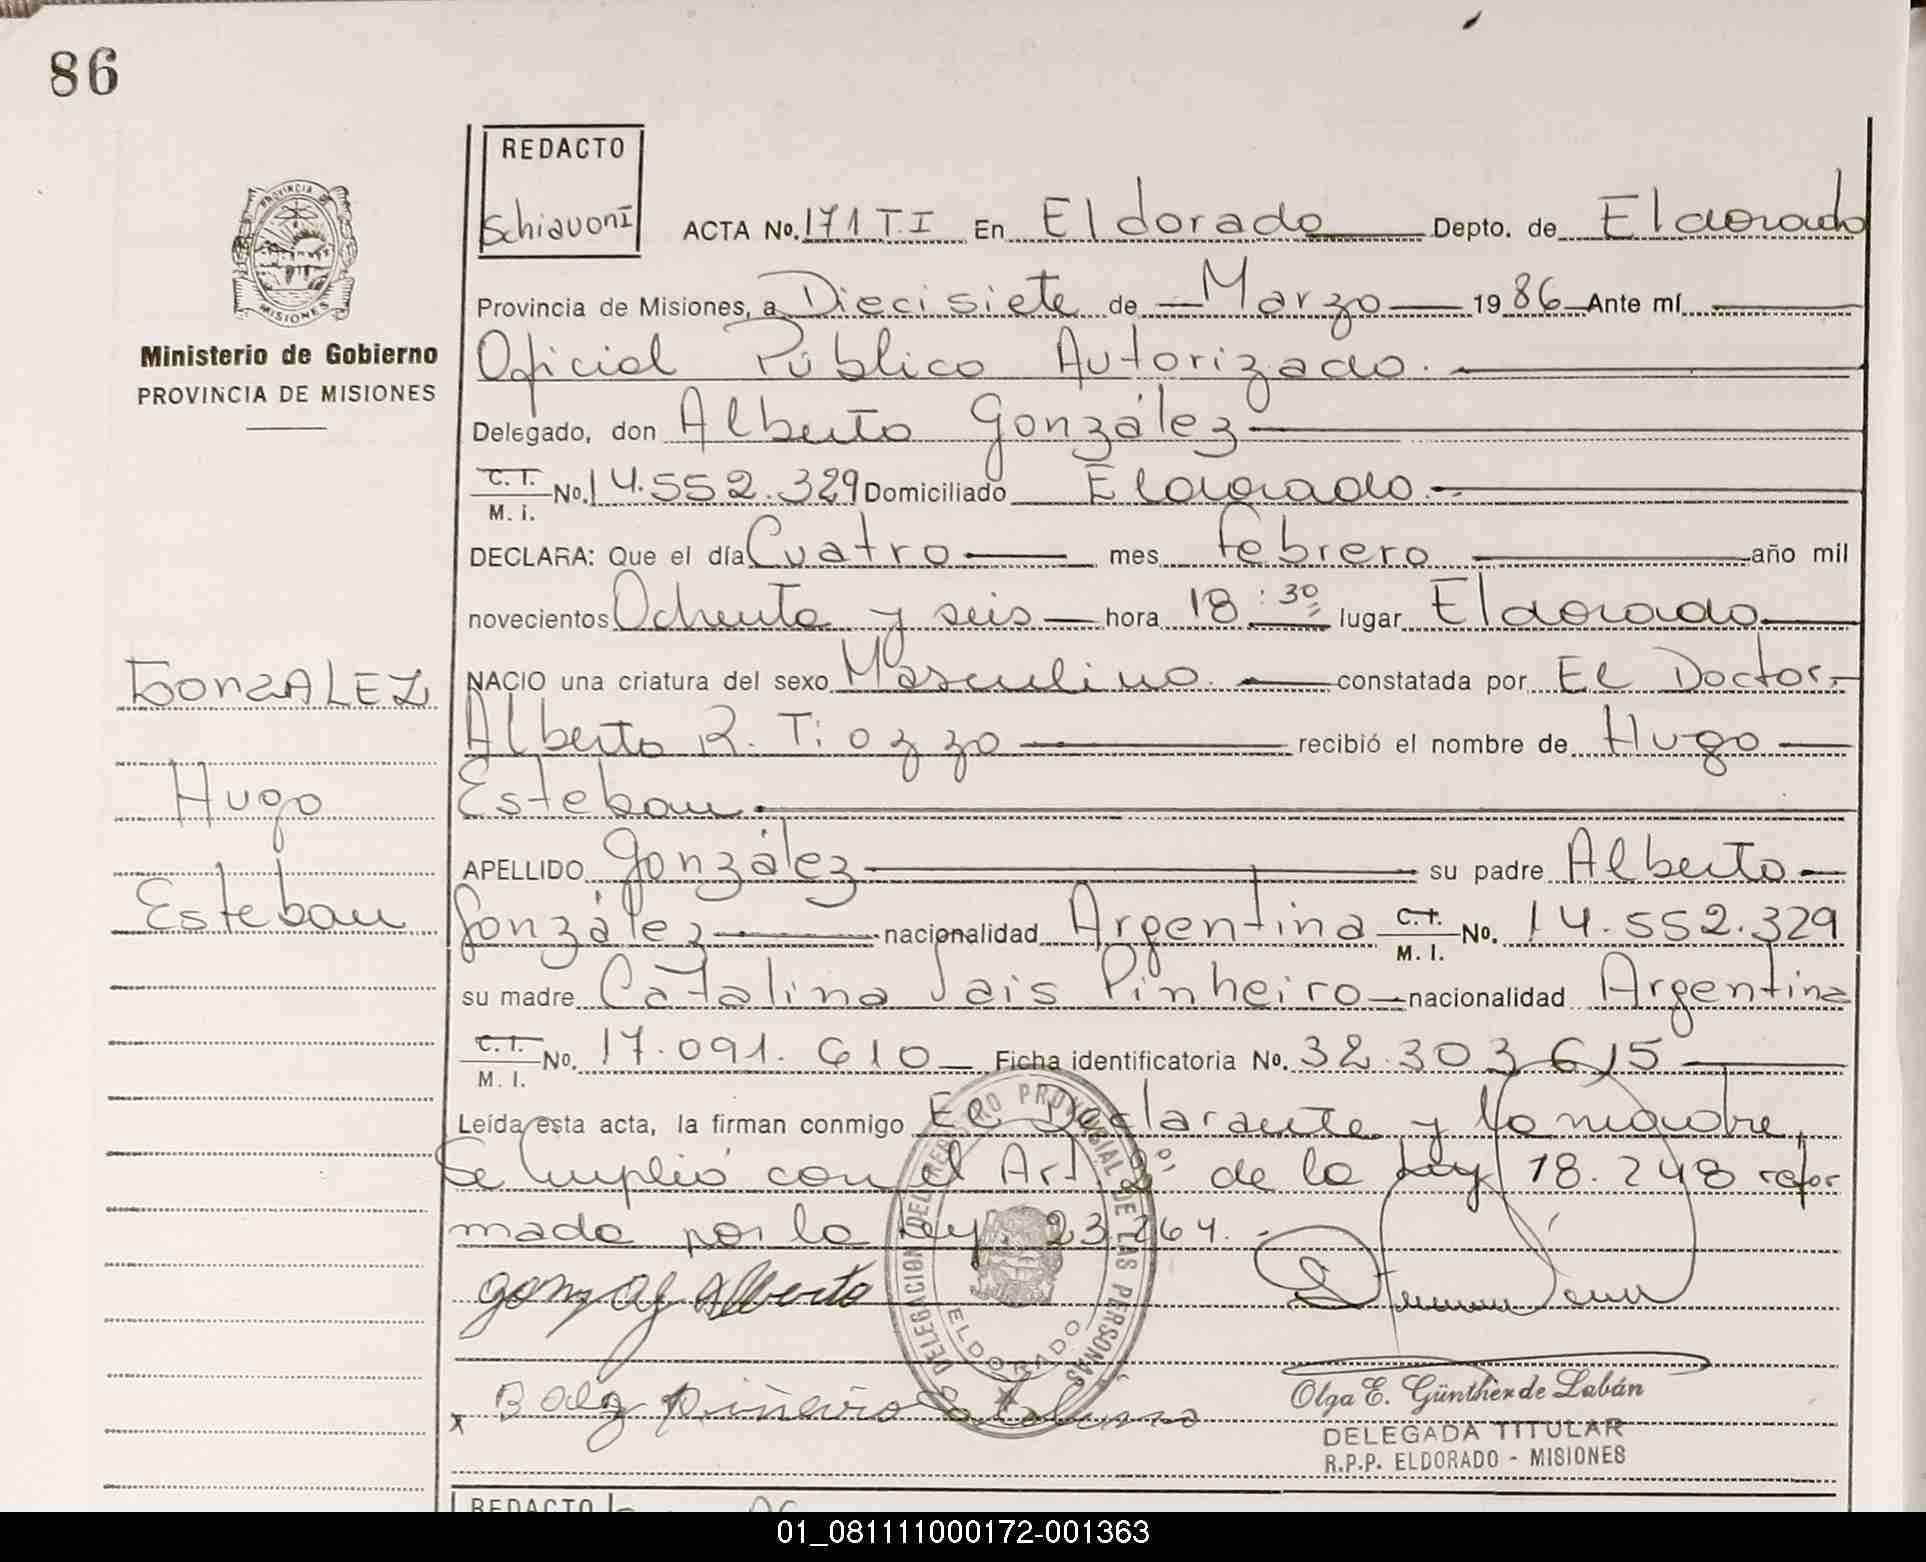 86
REDACTO
Schiavoni
ACTA No. 171 T.I En Eldorado Depto. de Eldorado
PROVINCIA DE
MISIONES
Provincia de Misiones, a Diecisiete de Marzo 1986 Ante mí
Ministerio de Gobierno
PROVINCIA DE MISIONES
Oficial Público Autorizado.
Delegado, don Alberto González
C. I. M. I. No. 14.552.329 Domiciliado Eldorado.
DECLARA: Que el día Cuatro mes febrero año mil
novecientos Ochenta y seis hora 18:30 lugar Eldorado
GONZALEZ
NACIO una criatura del sexo Masculino. constatada por El Doctor
Alberto R. Tiozzo recibió el nombre de Hugo
Hugo
Esteban
APELLIDO González su padre Alberto
Esteban
González nacionalidad Argentina C.I. M. I. No. 14.552.329
su madre Catalina Pinheiro nacionalidad Argentina
C. I. M. I. No. 17.091.610 Ficha identificatoria No. 32.303.615
Leída esta acta, la firman conmigo El Declarante y la madre,
Se cumplió con el Art. 2º de la Ley 18.248 refor
mado por la Ley 23.264.
Gonzalez Alberto
DELEGACION DEL REGISTRO PROVINCIAL DE LAS PERSONAS
ELDORADO
x
Olga E. Günther de Labán
DELEGADA TITULAR
R.P.P. ELDORADO - MISIONES
REDACTO
01_081111000172-001363